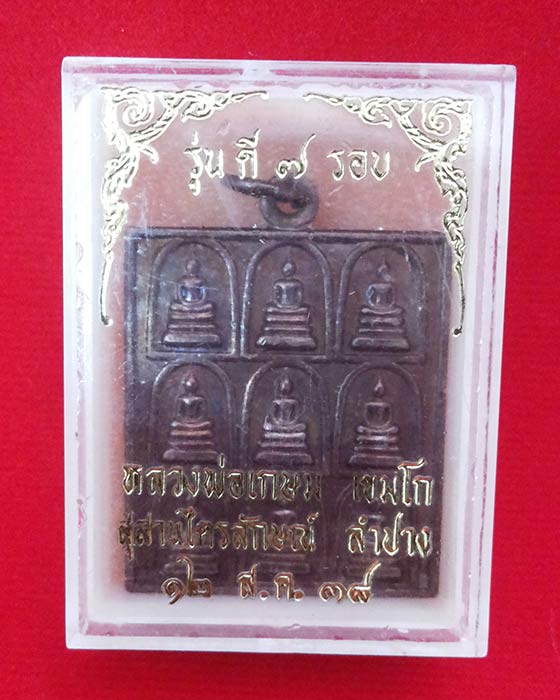 รุ่น ที ๗ รอบ
หลวงพ่อเกษม เขมโก
สุสานไตรลักษณ์ ลำปาง
๑๒ ส.ค. ๓๘